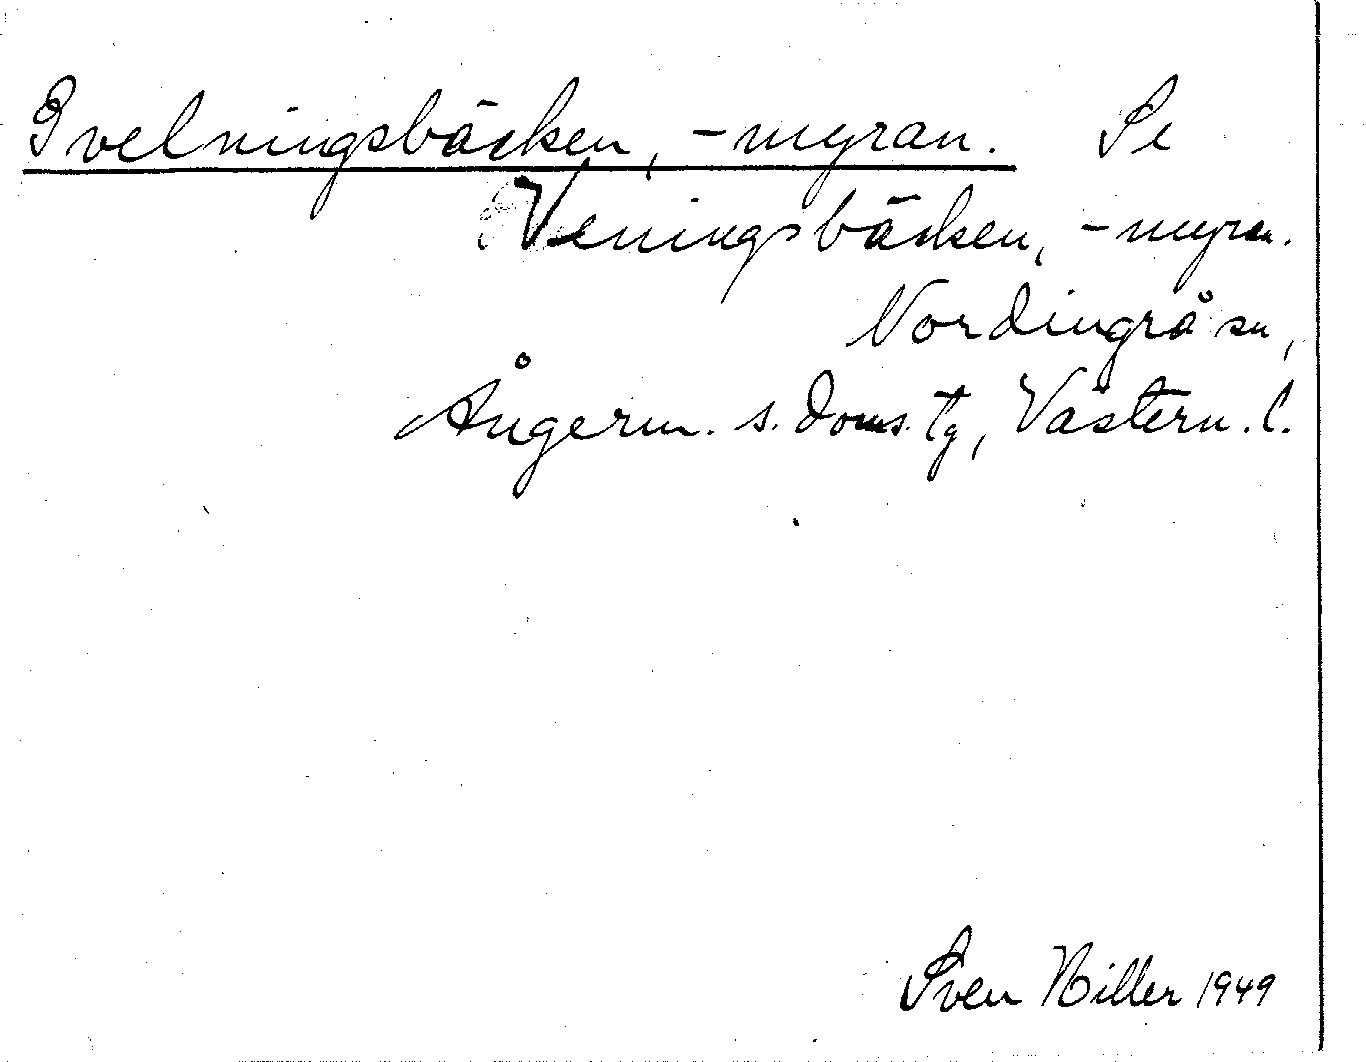 Ivelningsbäcken, -myran. Se
Veningsbäcken, -myran.
Nordingrå sn,
Ångerm. s. doms. tg, Västern. l.
Sven Hiller 1949